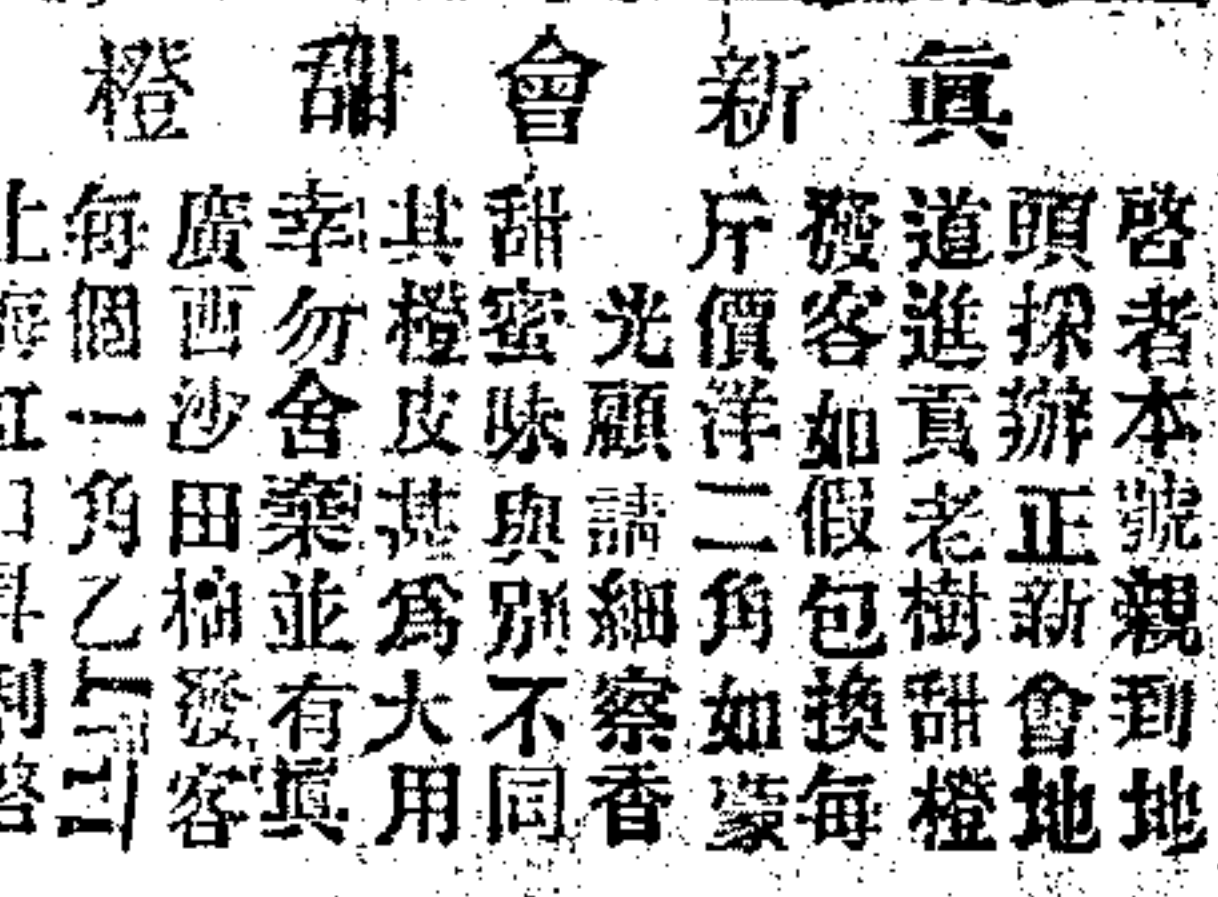 眞新會甜橙
啓者本號親到地
頭採辦正新會地
道進貢老樹甜橙
發客如假包換每
斤價洋二角如蒙
光顧請細察香
甜蜜味與別不同
其橙皮其爲大用
幸勿舍棄並有眞
廣西沙田柚發客
每個一角乙
上海虹口